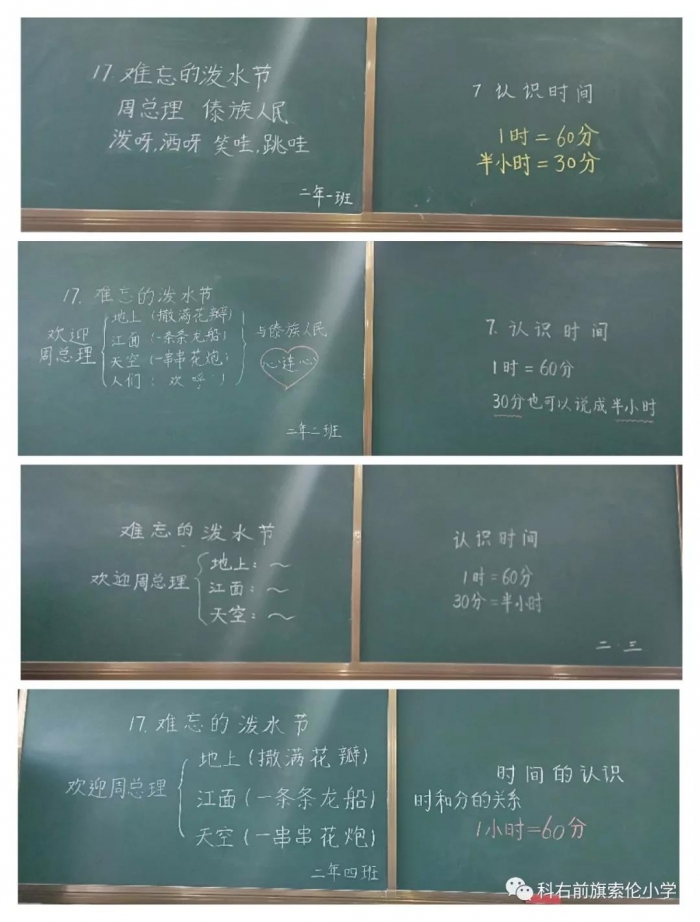 17.难忘的泼水节
周总理 傣族人民
泼呀,洒呀 笑哇,跳哇
二年一班
7 认识时间
1时=60分
半小时=30分
17. 难忘的泼水节
欢迎
周总理
地上(撒满花瓣)
江面(一条条龙船)
天空(一串串花炮)
人们:欢呼
与傣族人民
心连心
二年二班
7. 认识时间
1时=60分
30分也可以说成半小时
难忘的泼水节
欢迎周总理
地上:~
江面:~
天空:~
认识时间
1时=60分
30分=半小时
二.三
17.难忘的泼水节
欢迎周总理
地上(撒满花瓣)
江面(一条条龙船)
天空(一串串花炮)
二年四班
时间的认识
时和分的关系
1小时=60分
科右前旗索伦小学